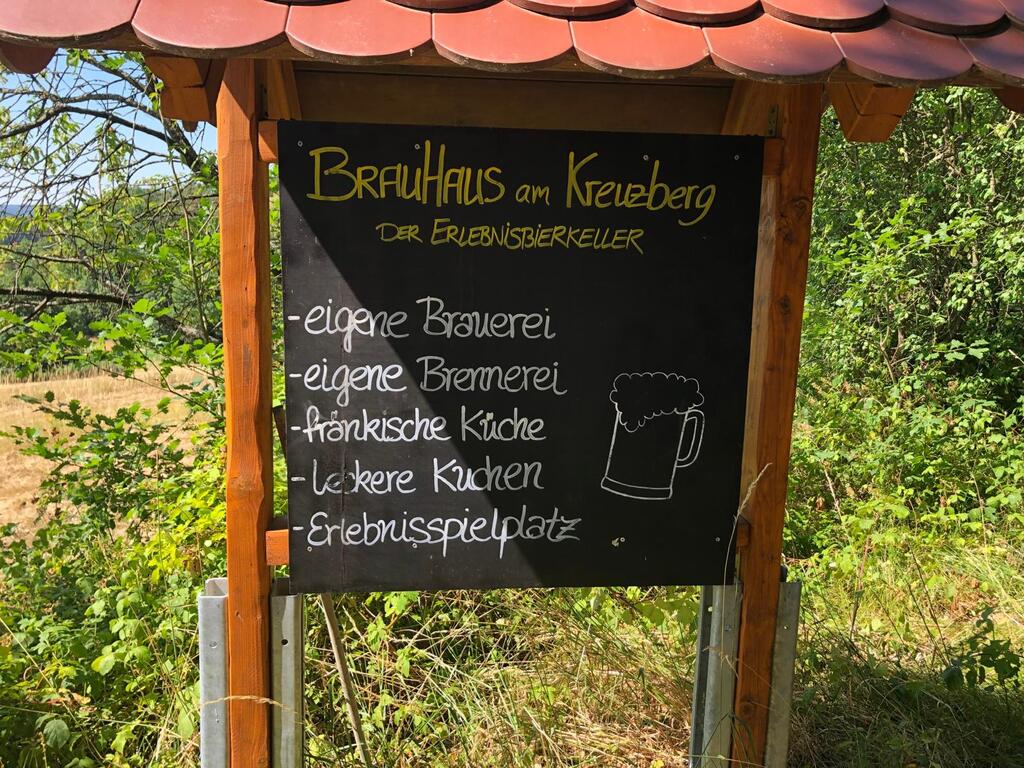 BrauHaus am Kreuzberg
DER ERLEBNISBIERKELLER
- eigene Brauerei
- eigene Brennerei
- fränkische Küche
- leckere Kuchen
- Erlebnisspielplatz